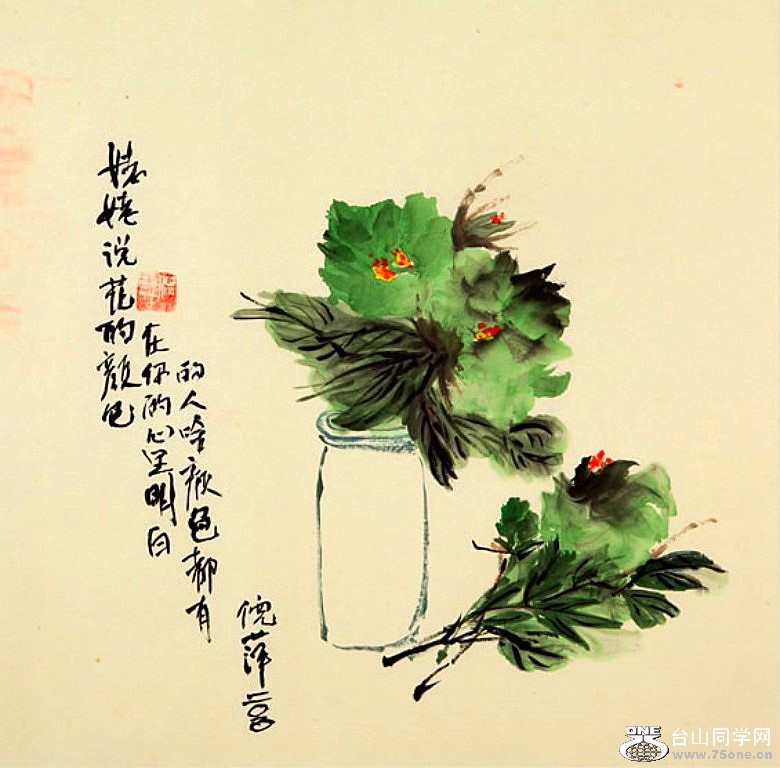 姥姥说花的颜色
在你的心里明白
的人啥颜色都有
倪萍
ONE
台山同学网
www.75one.cn